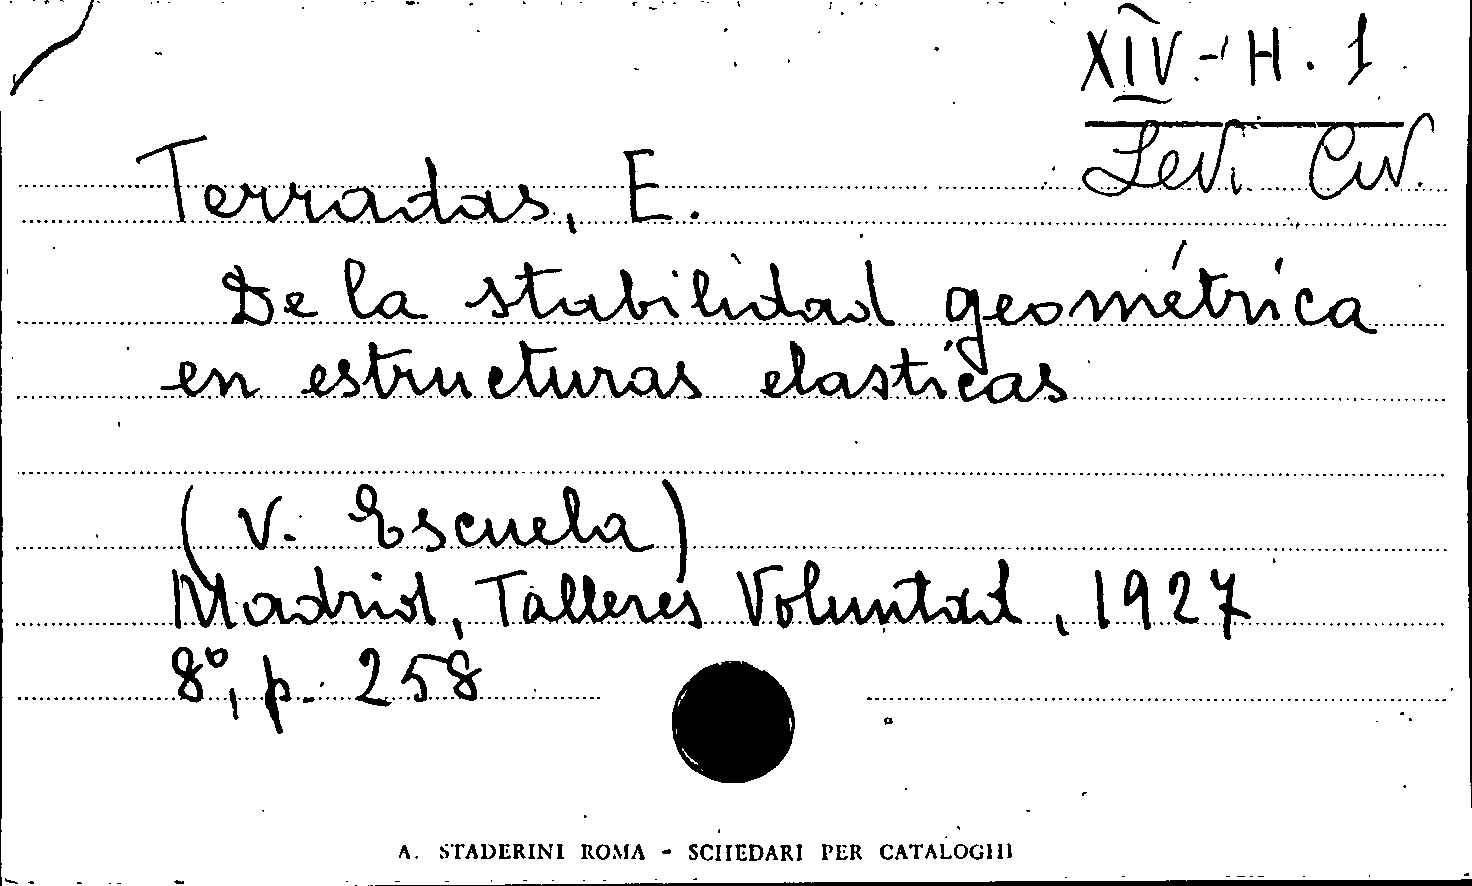 XIV - H. 1
Levi Civ.
Terradas, E.
De la stabilidad geométrica
en estructuras elasticas
(V. Escuela)
Madrid, Talleres Voluntad, 1927
8°, p. 258
A. STADERINI ROMA - SCHEDARI PER CATALOGHI